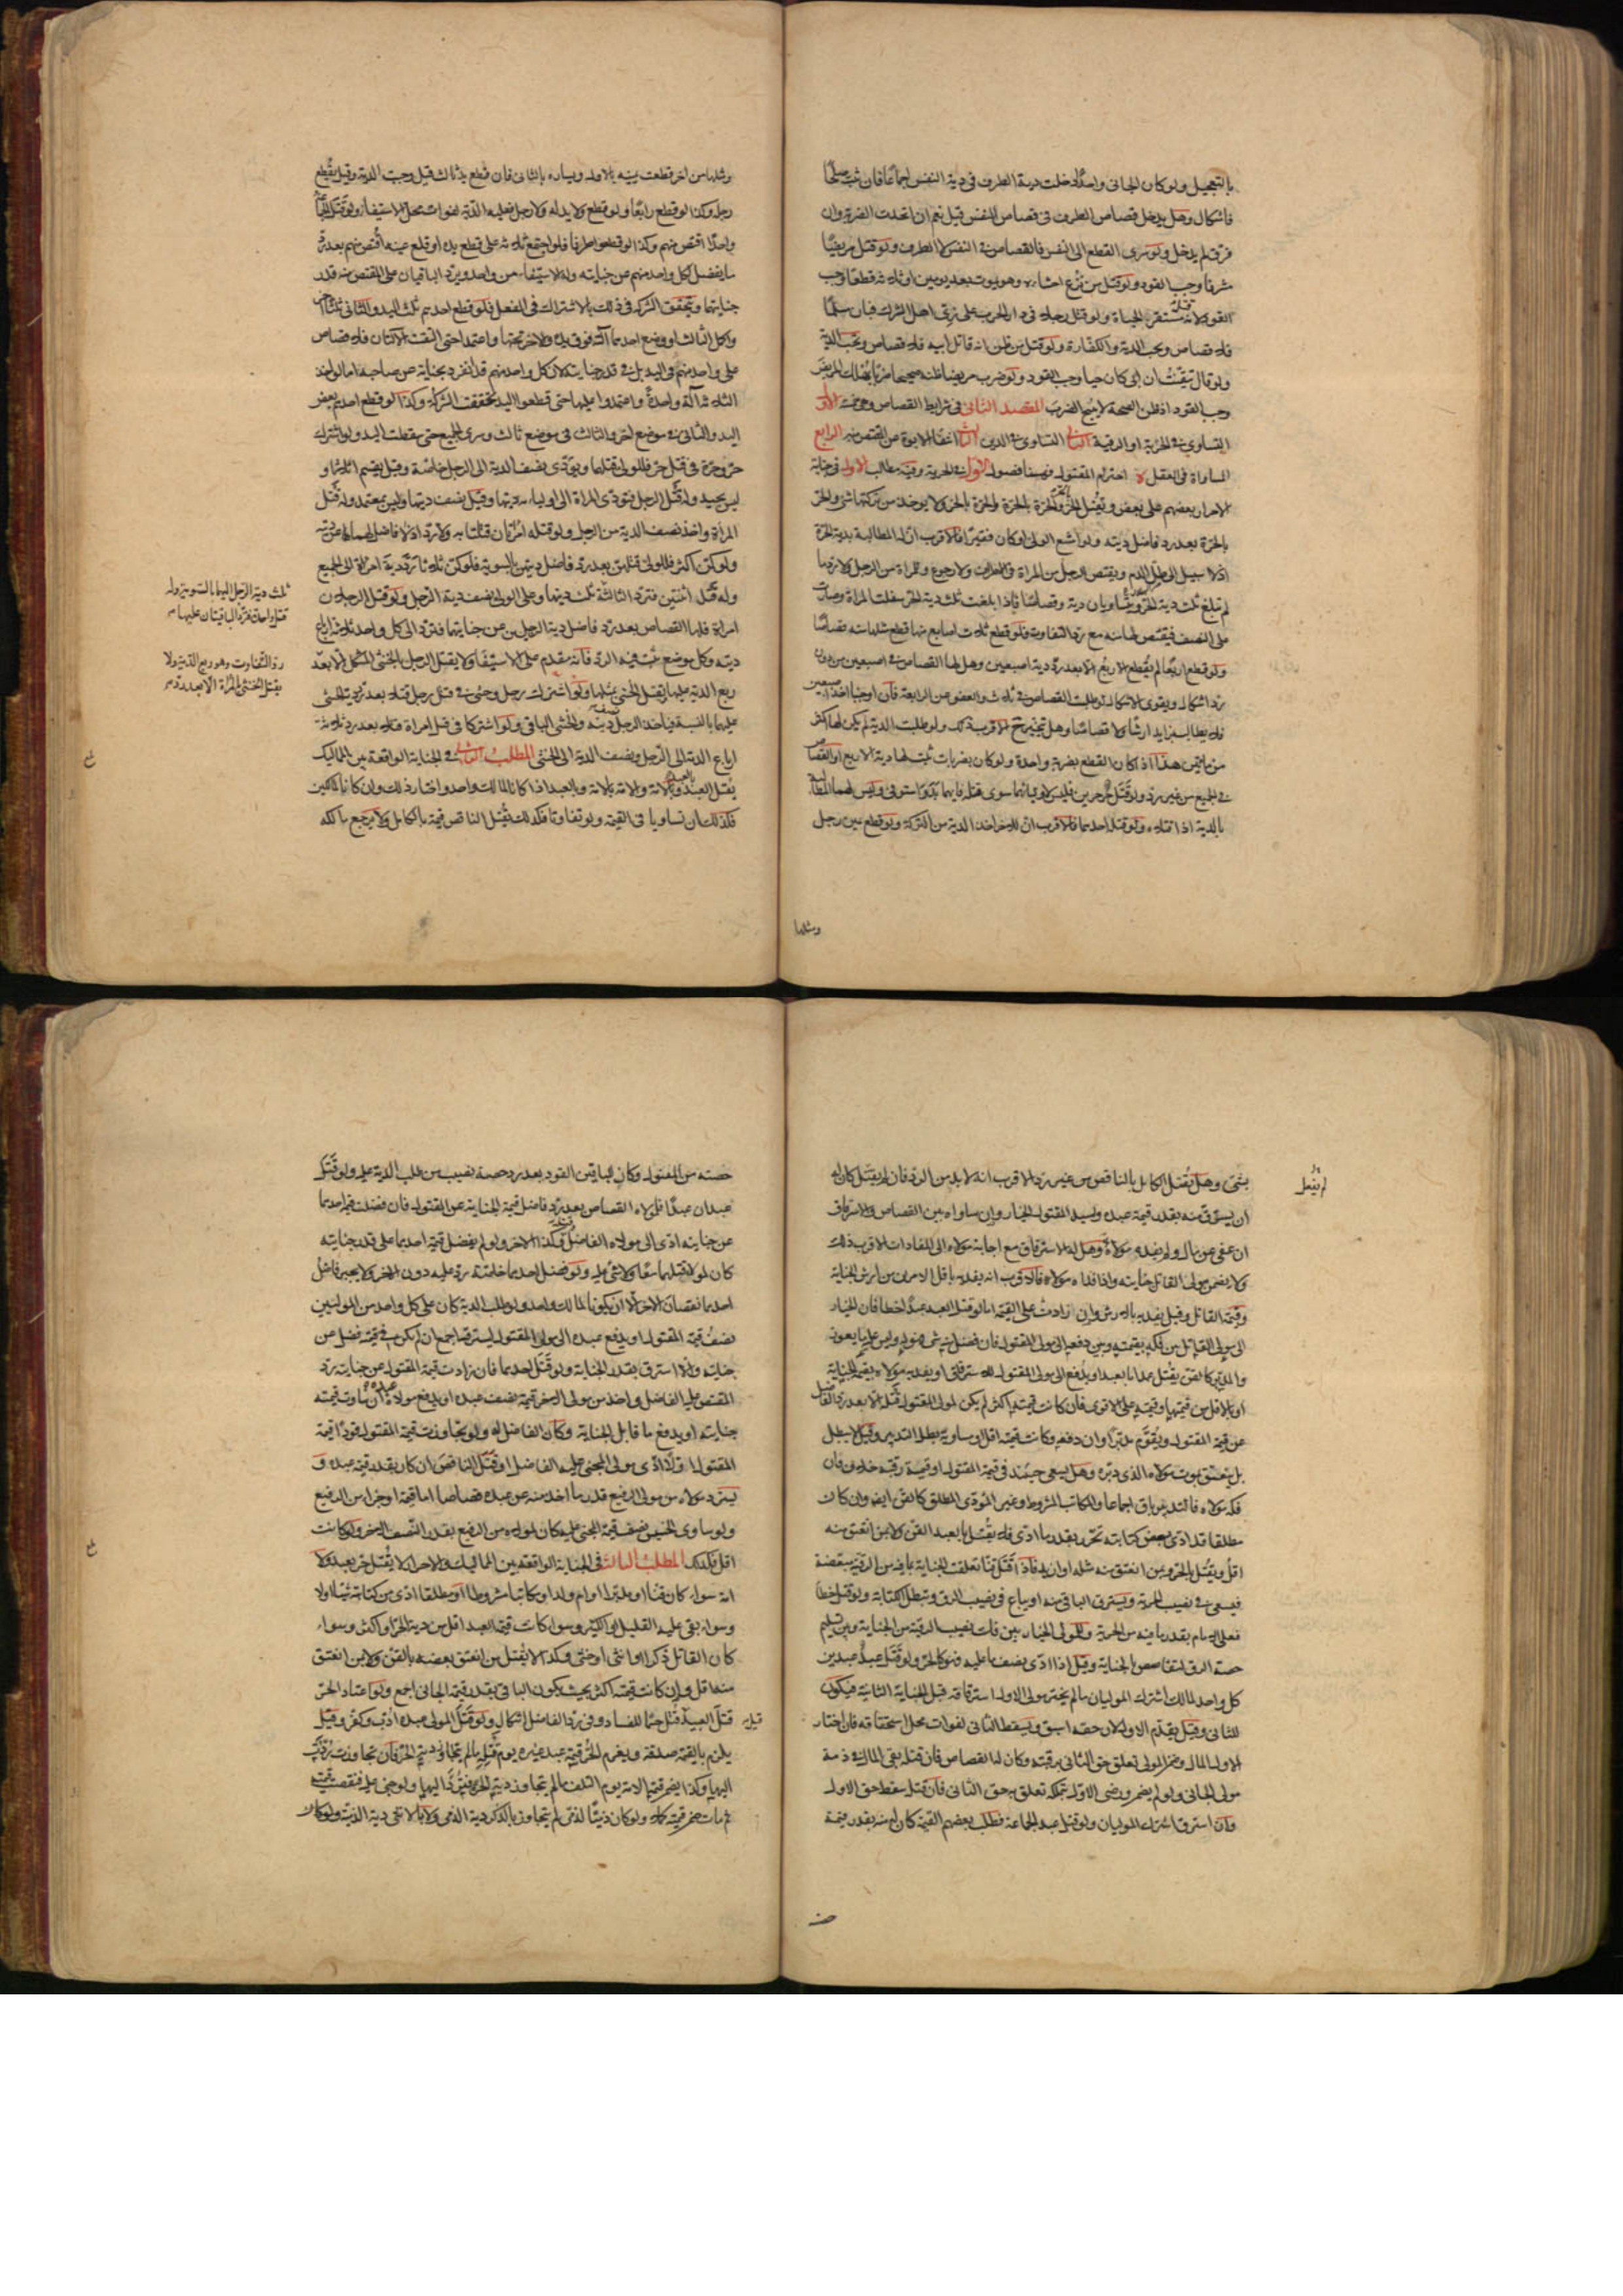 بالتعجيل ولو كان الجاني واحدًا دخلت دية الطرف في دية النفس اجماعًا فان ثبت صلحًا
فاشكال وهل يدخل قصاص الطرف في قصاص النفس قيل نعم ان اتحدت الضربة وان
فرق لم يدخل ولو سرى القطع الى النفس فالقصاص في النفس لا الطرف ولو قتل مريضًا
مشرفا وجب القود ولو قتل من نزع احشاءه وهو يموت بعد يومين او ثلاثة قطعًا وجب
القود لانه مستقر الحياة ولو قتل رجلا في دار الحرب على زي اهل الشرك فبان مسلما
فلا قصاص ويجب الدية والكفارة ولو قتل من ظن انه قاتل ابيه فلا قصاص ويجب الدية
ولو قال تيقنت ان ابي كان حيا وجب القود ولو ضرب مريضا ظنه صحيحا ضربا يهلك المريض
وجب القود اذ ظن الصحة لا يبيح الضرب المقصد الثاني في شرايط القصاص وهي خمسة الأول
التساوي في الحرية او الرقية الثاني التساوي في الدين الثالث انتفاء الابوة عن المقتص منه الرابع
المساواة في العقل احترام المقتول فهيهنا فصول الاول في الحرية وفيه مطالب الاول في جناية
الاحرار بعضهم على بعض ويقتل الحر بالحر والحرة بالحرة والحرة بالحر ولا يوخذ من تركتها شئ والحر
بالحرة بعد رد فاضل ديته ولو امتنع الولي او كان فقيرًا فالاقرب ان له المطالبة بدية الحرة
اذ لا سبيل الى طل الدم ويقتص للرجل من المراة في الطرف ولا رجوع وللمراة من الرجل ولا رد ما
لم تبلغ ثلث دية الحر ويتساويان دية وقصاصًا فاذا بلغت ثلث دية الحر سفلت المراة وصارت
على النصف فيقتص لها منه مع رد التفاوت فلو قطع ثلاث اصابع منها قطع مثلها منه قصاصًا
ولو قطع اربعًا لم يقطع الاربع الا بعد رد دية اصبعين وهل لها القصاص في اصبعين من دون
رد اشكال ويقوى الاشكال لو طلبت القصاص في ثلاث والعفو عن الرابعة
من مائتين هذا اذا كان القطع بضربة واحدة ولو كان بضربات ثبت لها دية الاربع او القصاص
في الجميع من غير رد ولو قتل حر حرين فليس لاوليائهما سوى قتله فايهما بدر استوفى وليس لهما المطالبة
بالدية اذا قتلاه ولو قتله احدهما فالاقرب ان للاخر اخذ الدية من التركة ولو قطع يمين رجل
ومثلها
ومثلها من اخر قطعت يمينه بالاول ويساره بالثاني فان قطع يد ثالث قيل وجبت الدية وقيل يقطع
رجله وكذا لو قطع رابعًا ولو قطع ولا يد له ولا رجل فعليه الدية لفوات محل الاستيفاء ولو قتل
واحدًا اقتص منهم وكذا لو قطعوا طرفا فلو اجتمع ثلاثة على قطع يده او قلع عينه اقتص منهم بعد رد
ما يفضل لكل واحد منهم عن جنايته وله الاستيفاء من واحد ويرد الباقيان على المقتص منه قدر
جنايتهما ويتحقق الشركة في ذلك بالاشتراك في الفعل فلو قطع احدهم ثلث اليد والثاني ثلثًا اخر
واكمل الثالث او وضع احدهما آلته فوق يده والاخر تحتها واعتمدا حتى التقت الآلتان فلا قصاص
على واحد منهم في اليد بل في قدر جنايته لان كل واحد منهم قد انفرد بجناية عن صاحبه اما لو اخذ
الثلاثة آلة واحدة واعتمدوا عليها حتى قطعوا اليد تحققت الشركة وكذا لو قطع احدهم بعض
اليد والثاني في موضع اخر والثالث في موضع ثالث وسرى الجميع حتى سقطت اليد ولو اشترك
حر وحرة في قتل حر فللولي قتلهما ويؤدى نصف الدية الى الرجل خاصة وقيل يقسم اثلاثا و
ليس بجيد وله قتل الرجل فتؤدى المراة الى اولياء ديتها وقيل نصف ديتها وليس بمعتمد وله قتل
المرأة واخذ نصف الدية من الرجل ولو قتله امرأتان قتلتا به ولا رد اذ لا فاضل لهما عن ديته
ولو كن اكثر فللولي قتلهن بعد رد فاضل ديتهن بالسوية فلو كن ثلاثا رد دية امراة الى الجميع
وله قتل اثنتين فترد الثالثة ثلث ديتها وعلى الولي نصف دية الرجل ولو قتل الرجلان
امراة فلها القصاص بعد رد فاضل دية الرجلين عن جنايتهما فترد الى كل واحد ثلاثة ارباع
ديته وكل موضع يثبت فيه الرد فانه مقدم على الاستيفاء ولا يقتل الرجل بالخنثى المشكل الا بعد
ربع الدية عليها ويقتل الخنثى بمثلها ولو اشترك رجل وخنثى في قتل رجل قتلا بعد رد دية خنثى
عليهما بالنسبة فياخذ الرجل نصف ديته والخنثى الباقي ولو اشتركا في قتل امراة قتلا بعد رد ثلاثة
ارباع الدية الى الرجل ونصف الدية الى الخنثى المطلب الثاني في الجناية الواقعة بين المماليك
يقتل العبد بالعبد وبالامة والامة بالامة وبالعبد اذا كانا لمالك واحد واختار ذلك وان كانا لمالكين
فكذلك ان تساويا في القيمة ولو تفاوتا فكذلك يقتل الناقص قيمة بالكامل ولا يرجع مالكه
ثلث دية الرجل اليهما بالسوية وله
قتل واحدة فترد الباقيتان عليها
رد التفاوت وهو ربع الدية ولا
يقتل الخنثى بالمرأة الا بعد رد
بشئ وهل يقتل الكامل بالناقص من غير رد الاقرب انه لا بد من الرد فان لم يقتل كان له
ان يسترق منه بقدر قيمة عبده ولسيد المقتول الخيار وان ساواه بين القصاص والاسترقاق
ان عفى عن مال ولم يفده مولاه وهل له الاسترقاق مع اجابة مولاه الى المفادات الاقرب ذلك
ولا يضمن مولى القاتل جنايته واذا فداه مولاه فالاقرب انه يفديه باقل الامرين من ارش الجناية
وقيمة القاتل وقيل يفديه بالارش وان زادت على القيمة اما لو قتل العبد عبدًا خطأ فان الخيار
الى مولى القاتل بين فكه بقيمته وبين دفعه الى مولى المقتول فان فضل منه شئ فهو له وليس عليه ما يعوز
والمدبر كالقن يقتل عمدا بالعبد او يدفع الى مولى المقتول للاسترقاق او يفديه مولاه بقيمة الجناية
او بالاقل من قيمتها وقيمته على الاقوى فان كانت قيمته اكثر لم يكن لمولى المقتول قتله الا بعد رد الفاضل
عن قيمة المقتول ويقوم مدبرًا وان دفعه وكانت قيمته اقل او مساوية بطل التدبير وقيل لا يبطل
بل ينعتق بموت مولاه الذي دبره وهل يسعى حينئذ في قيمة المقتول او قيمة رقبته خلاف فان
فكه مولاه فالتدبير باق اجماعا والمكاتب المشروط وغير المؤدى المطلق كالقن ايضا وان كان
مطلقا قد ادى بعض كتابته تحرر بقدر ما ادى فلا يقتل بالعبد القن ولا من انعتق منه
اقل ويقتل بالحر وبمن انعتق منه مثله او ازيد فاذا قتل قنا تعلقت الجناية بما فيه من الرقية مبعضة
فيسعى في نصيب الحرية ويسترق الباقي منه او يباع في نصيب الرق وتبطل الكتابة ولو قتل خطأ
فعلى الامام بقدر ما فيه من الحرية وللمولى الخيار بين فك نصيب الرقية من الجناية وبين تسليم
حصة الرق لتقاصص بالجناية وقيل اذا ادى نصف ما عليه فهو كالحر ولو قتل عبد عبدين
كل واحد لمالك اشترك الموليان ما لم يختر مولى الاول استرقاقه قبل الجناية الثانية فيكون
للثاني وقيل يقدم الاول لان حقه اسبق ويسقط الثاني لفوات محل استحقاقه فان اختار
الاول المال وضمن المولى تعلق حق الثاني برقبته وكان له القصاص فان قتله بقى المال في ذمة
مولى الجاني ولو لم يضمن ورضى الاول تملكه تعلق به حق الثاني فان قتله سقط حق الاول
وان استرق اشترك الموليان ولو قتل عبد الجماعة فطلب بعضهم القيمة كان له منه بقدر قيمة
حصته من المقتول وكان للباقين القود بعد رد حصة نصيب من طلب الدية عليه ولو قتل
عبدان عبدًا فلمولاه القصاص بعد رد فاضل قيمة الجناية عن المقتول فان فضلت قيمة احدهما
عن جنايته ادى الى مولاه الفاضل وكذا الاخر ولو لم يفضل قيمة احدهما على قدر جنايته
كان لمولاه قتلهما معًا ولا شئ عليه ولو فضل احدهما خاصة رد عليه دون الاخر ولا يجبر فاضل
احدهما نقصان الاخر الا ان يكونا لمالك واحد ولو طلب الدية كان على كل واحد من الموليين
نصف قيمة المقتول او يدفع عبده الى مولى المقتول ليسترقه اجمع ان لم يكن في قيمته فضل عن
جنايته والا استرق بقدر الجناية ولو قتل احدهما فان زادت قيمة المقتول عن جنايته رد
المقتص عليه الفاضل واخذ من مولى الاخر قيمة نصف عبده او يدفع مولاه عبده ان ساوت قيمته
جنايته او يدفع ما قابل الجناية وكان الفاضل له ولو تجاوزت قيمة المقتول قودًا قيمة
المقتول اولا ادى مولى المجنى عليه الفاضل او قتل الناقص ان كان بقدر قيمة عبده و
يسترد مولاه من مولى الرفيع قدر ما اخذ منه عن عبده قصاصا اما قيمة او جزاء من الرفيع
ولو ساوى الخسيس نصف قيمة المجنى عليه كان لمولاه من الرفيع بقدر النصف الاخر ولو كانت
اقل فكذلك المطلب الثالث في الجناية الواقعة بين المماليك والاحرار لا يقتل حر بعبد ولا
امة سواء كان قنًا او مدبرا او ام ولد او مكاتبا مشروطا او مطلقا ادى من كتابته شيئا اولا
وسواء بقى عليه القليل او الكثير وسواء كانت قيمة العبد اقل من دية الحر او اكثر وسواء
كان القاتل ذكرا او انثى او خنثى وكذا لا يقتل من انعتق بعضه بالقن ولا بمن انعتق
منه اقل وان كانت قيمته اكثر بحيث يكون الباقي بقدر قيمة الجاني اجمع ولو اعتاد الحر
قتل العبيد قتل حسما للفساد وفي رد الفاضل اشكال ولو قتل المولى عبده ادب وكفر وقيل
يلزم بالقيمة صدقة ويغرم الحر قيمة عبد غيره يوم قتله ما لم يتجاوز دية الحر فان تجاوزت ردت
اليها وكذا يضمن قيمة الامة يوم التلف ما لم يتجاوز دية الحرة فيرد اليها ولو جنى عليه فنقصت قيمته
ثم مات ضمن قيمته كملا ولو كان ذميًا لذمي لم يتجاوز بالذكر دية الذمي ولا بالانثى دية الذمية ولو كان
لم يقتل
قيل